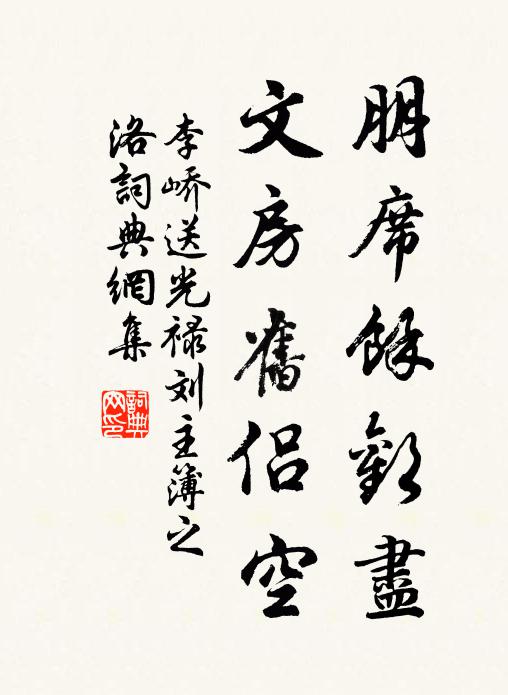 朋席餘歡盡
文房舊侣空
李嶠送光禄刘主簿之
洛詞典網集
詞典
网印